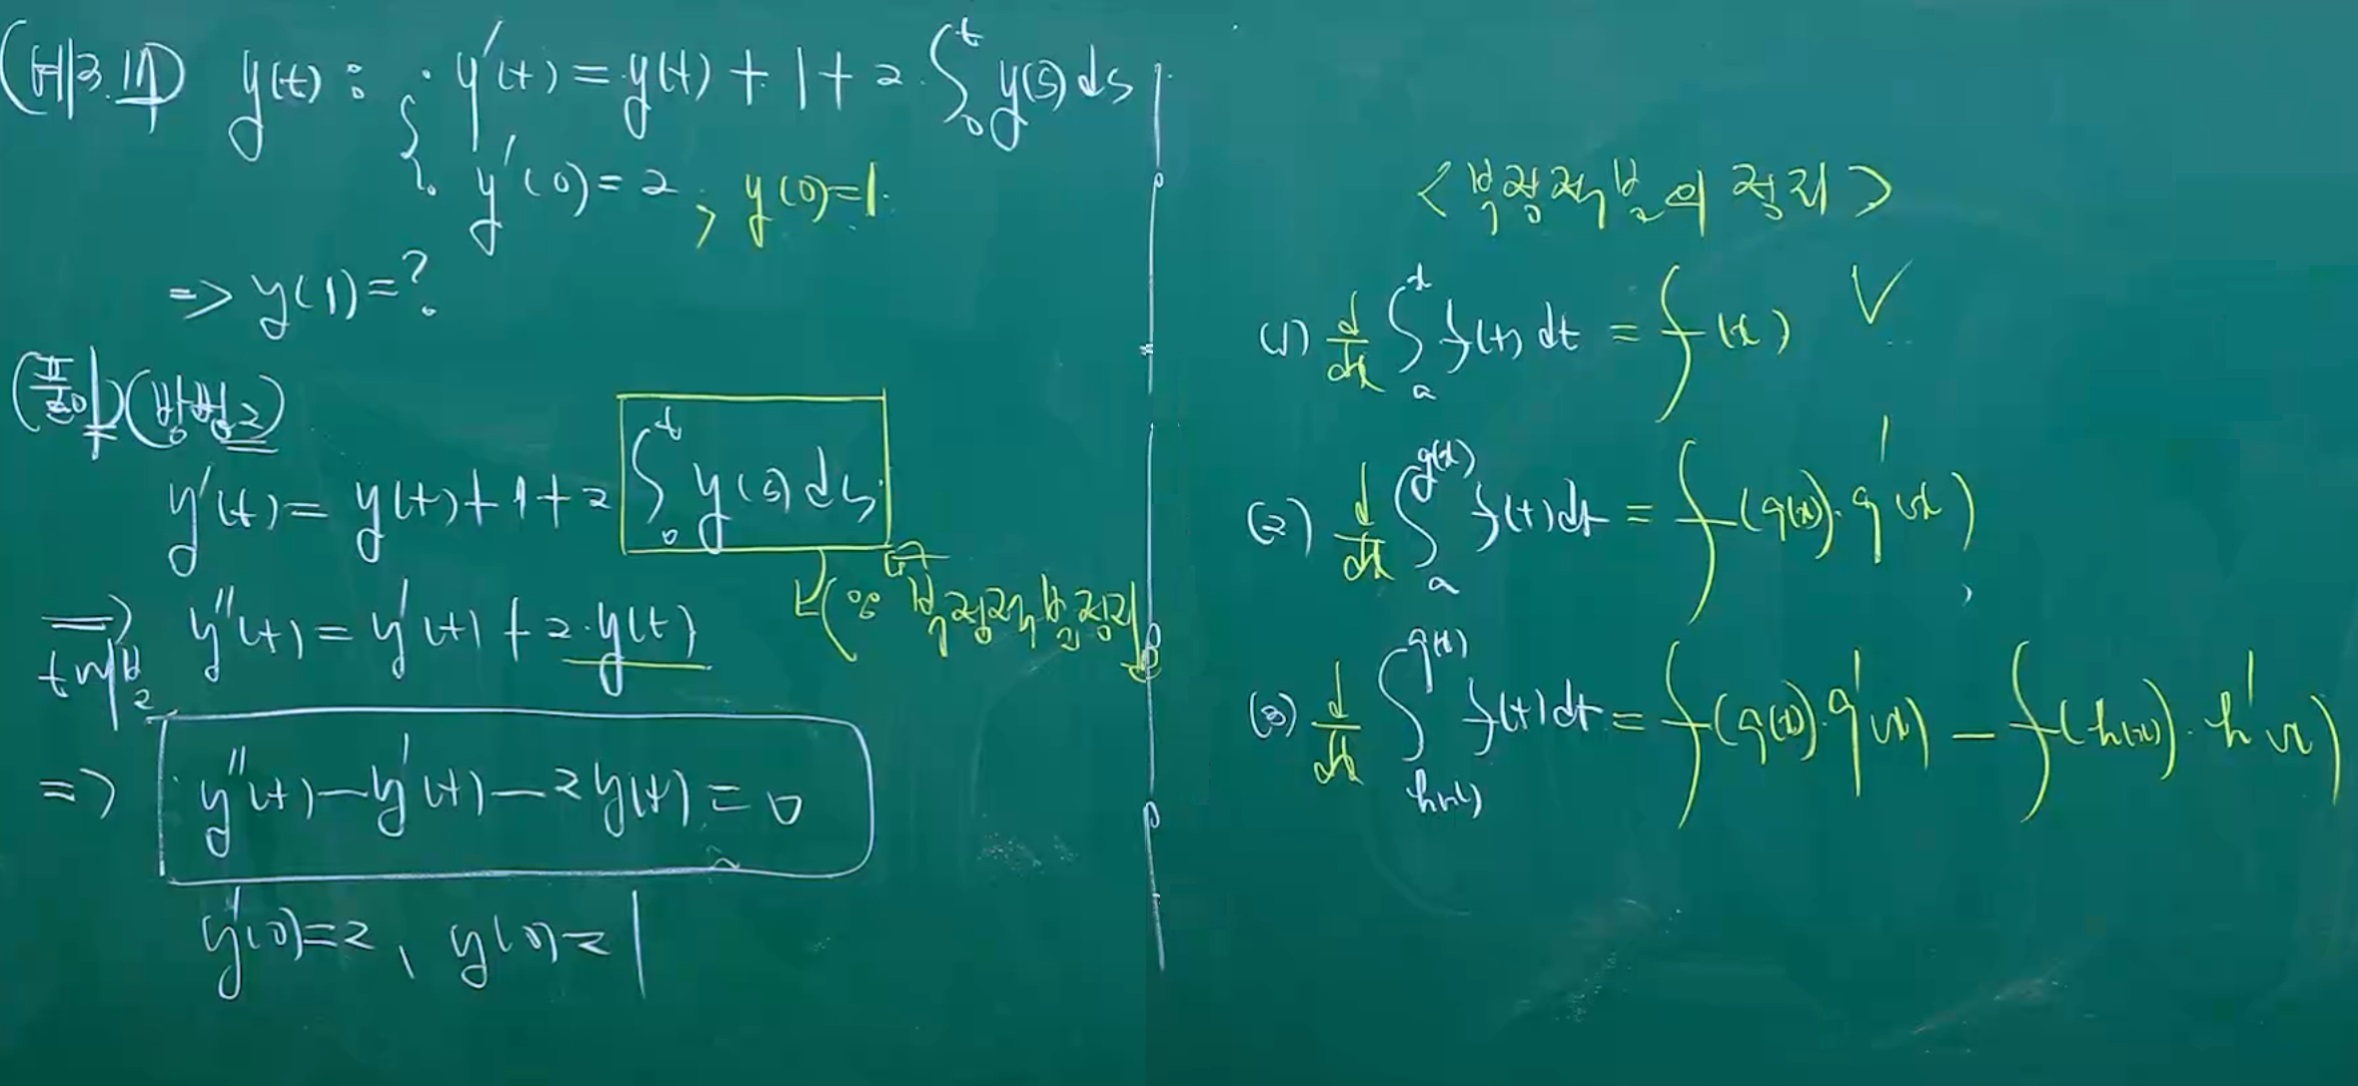 y(t) : y'(t) = y(t) + 1 + 2·∫₀ᵗ y(s) ds
y'(0) = 2, y(0)=1.
=> y(1)=?
(풀이)(방법2)
y'(t) = y(t) + 1 + 2 ∫₀ᵗ y(s) ds
(∵ 미적분 정리)
=> y''(t) = y'(t) + 2·y(t)
t미분
=> y''(t) – y'(t) – 2y(t) = 0
y'(0)=2, y(0)=1
(1) d/dx ∫ₐˣ f(t) dt = f(x) V
(2) d/dx ∫ₐ^g(x) f(t)dt = f(g(x))·g'(x)
(3) d/dx ∫_h(x)^g(x) f(t)dt = f(g(x))·g'(x) – f(h(x))·h'(x)